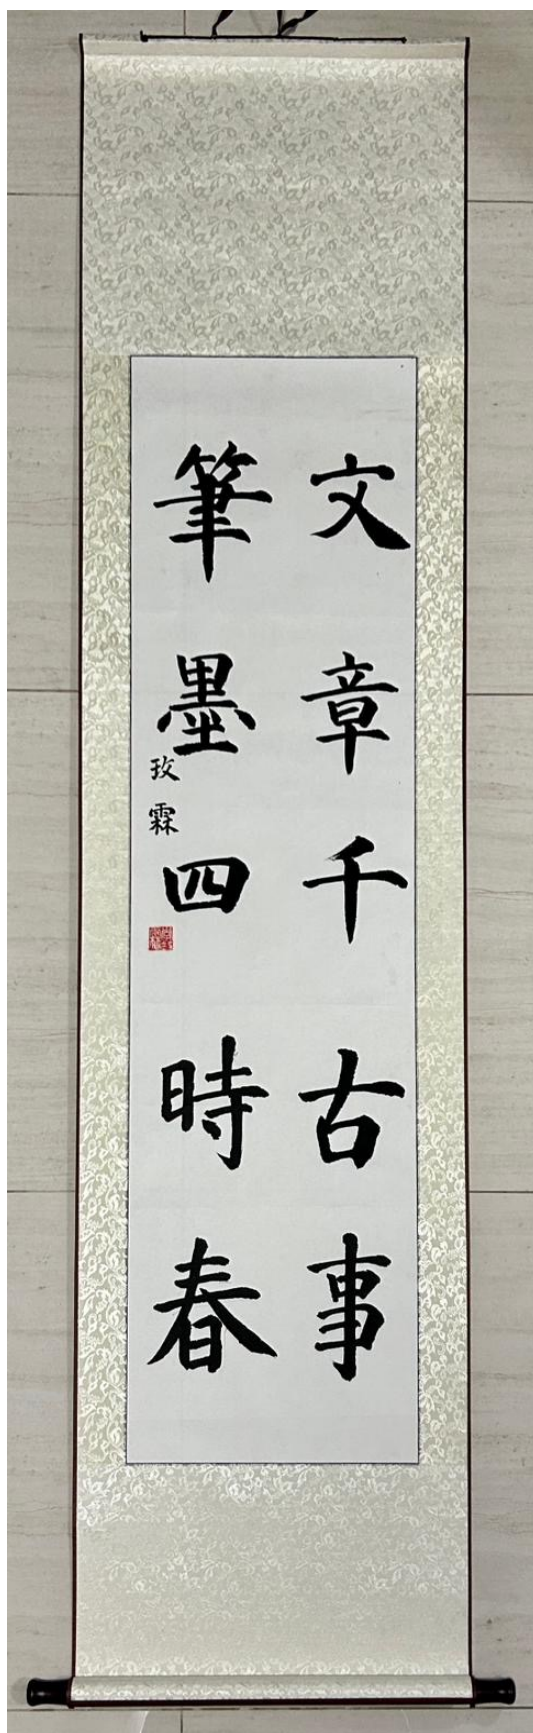 文章千古事
筆墨四時春
玫霖